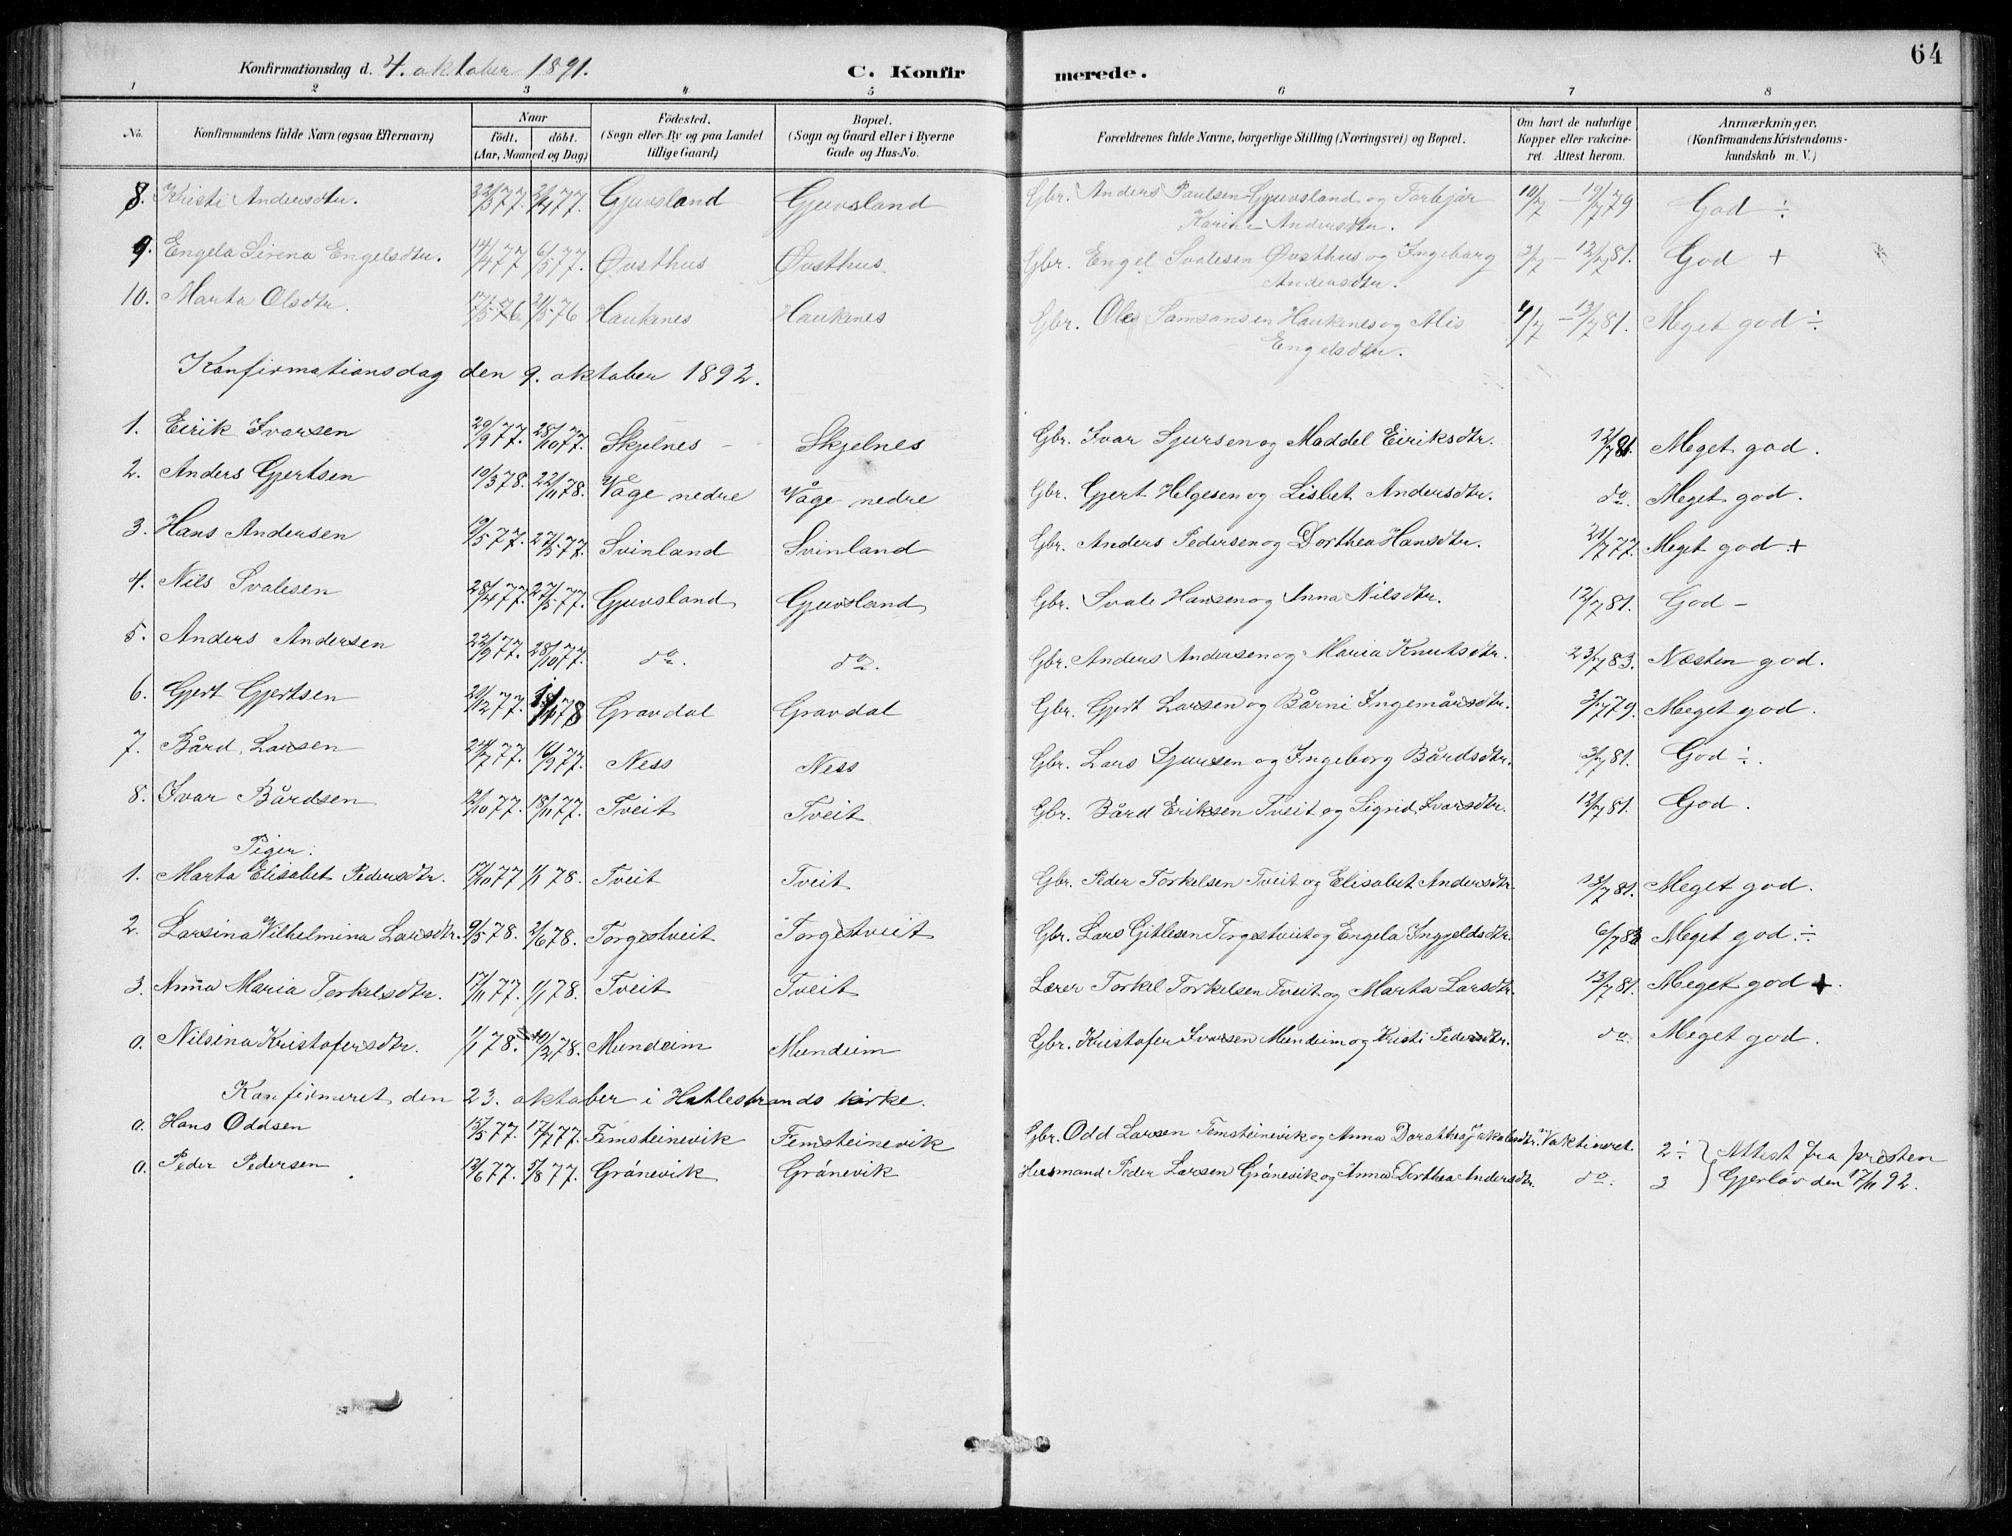 64
Konfirmationsdag d. 4. oktober 1891. C. Konfirmerede.
1 2 3 4 5 6 7 8
No. Konfirmandens fulde Navn (ogsaa Efternavn) Naar födt. döbt. (Aar, Maaned og Dag) Födested. (Sogn eller By og paa Landet tillige Gaard) Bopæl. (Sogn og Gaard eller i Byerne Gade og Hus-No. Forældrenes fulde Navne, borgerlige Stilling (Næringsvei) og Bopæl. Om havt de naturlige Kopper eller vakcineret. Attest herom. Anmærkninger. (Konfirmandens Kristendomskundskab m. V.)
8. Kristi Andersdtr. 22/3 77. 2/4 77. Gjuvsland Gjuvsland Gbr. Anders Paulsen Gjuvsland og Torbjør 10/7 – 19/7 79 God ÷
Karine Andersdtr.
9. Engela Sirena Engelsdtr. 14/4 77 6/5 77. Øvsthus Øvsthus Gbr. Engel Svalesen Øvsthus og Ingeborg 3/7 – 12/7 81. God +
Andersdtr.
10. Marta Olsdtr. 17/5 76. 21/5 76 Haukenes Haukenes Gbr. Ole Samsonsen Haukenes og Alis 4/7 – 13/7 81. Meget god ÷
Engelsdtr.
Konfirmationsdag den 9. oktober 1892.
1. Eirik Ivarsen 29/9 77. 28/10 77. Skjelnes Skjelnes Gbr. Ivar Sjursen og Maddel Eiriksdtr. 12/7 81. Meget god.
2. Anders Gjertsen 19/3 78. 22/4 78. Våge nedre Våge nedre Gbr. Gjert Helgesen og Lisbet Andersdtr. do Meget god.
3. Hans Andersen 19/5 77. 27/5 77. Svinland Svinland Gbr. Anders Pedersen og Dorthea Hansdtr. 21/7 77. Meget god +
4. Nils Svalesen 28/4 77. 27/5 77. Gjuvsland Gjuvsland Gbr. Svale Hansen og Anna Nilsdtr. 12/7 81. God –
5. Anders Andersen 22/9 77. 28/10 77. do. do. Gbr. Anders Andersen og Maria Knutsdtr. 23/7 83. Næsten god.
6. Gjert Gjertsen 20/12 77. 78 Gravdal Gravdal Gbr. Gjert Larsen og Bårni Ingemårsdtr. 3/7 79. Meget god.
7. Bård Larsen 24/7 77. 16/9 77. Ness Ness Gbr. Lars Sjursen og Ingeborg Bårdsdtr. 3/7 81. God ÷.
8. Ivar Bårdsen 12/10 77. 18/11 77. Tveit Tveit Gbr. Bård Eriksen Tveit og Sigrid Ivarsdtr. 12/7 81. God.
Piger:
1. Marta Elisabet Pedersdtr. 17/10 77 1/1 78. Tveit Tveit Gbr. Peder Torkelsen Tveit og Elisabet Andersdtr. 13/7 81. Meget god.
2. Larsina Vilhelmina Larsdtr. 9/5 78. 2/6 78. Torgestveit Torgestveit Gbr. Lars Gitlesen Torgestveit og Engela Ingjeldsdtr. 6/7 83 Meget god ÷
3. Anna Maria Torkelsdtr. 17/11 77. 1/1 78. Tveit Tveit Lærer Torkel Torkelsen Tveit og Marta Larsdtr. 13/7 81. Meget god +.
0. Nilsina Kristofersdtr. 1/1 78. 10/2 78. Mundeim Mundeim Gbr. Kristofer Ivarsen Mundeim og Kristi Pedersdtr. do. Meget god.
Konfirmeret den 23. oktober i Hatlestrands kirke.
0. Hans Oddsen 13/5 77. 17/7 77. Femsteinevik Femsteinevik Gbr. Odd Larsen Femsteinevik og Anna Dorathea Jakobsdtr. Vakcineret. 2 ÷ Attest fra presten
0. Peder Pedersen 12/6 77. 5/8 77. Grånevik Grånevik Husmand Peder Larsen Grånevik og Anna Dorthea Andersdtr. do. 3 Gjerløv den 17/11 92.